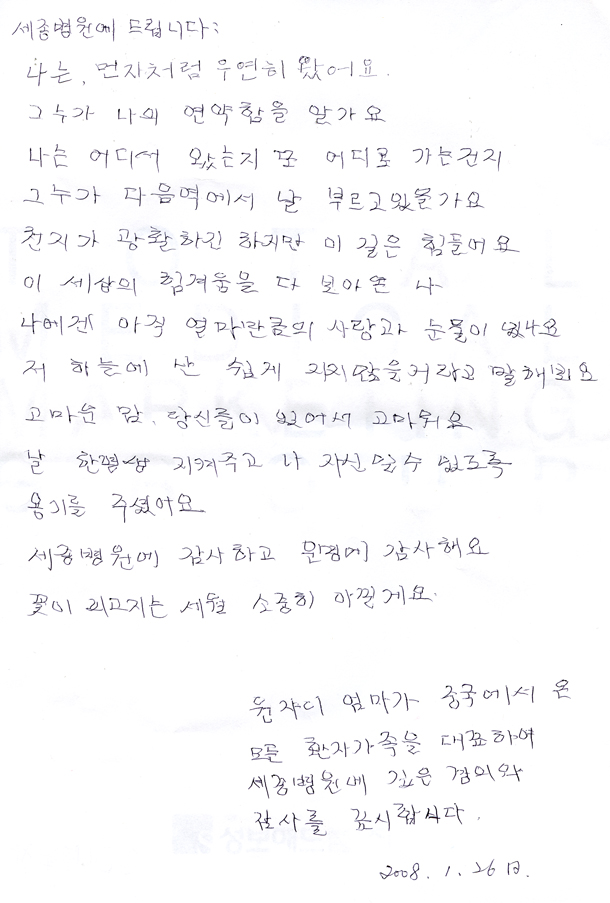 세종병원에 드립니다:
나는, 먼지처럼 우연히 왔어요.
그누가 나의 연약함을 알가요
나는 어디서 왔는지 또 어디로 가는건지
그누가 다음역에서 날 부르고있을가요
천지가 광활하긴 하지만 이 길은 힘들어요
이 세상의 힘겨움을 다 보아온 나
나에겐 아직 얼마만큼의 사랑과 눈물이 있나요
저 하늘에 난 쉽게 지지않을거라고 말해줘요
고마운 맘, 당신들이 있어서 고마워요
날 한평생 지켜주고 나 자신일수 있도록
용기를 주셨어요
세종병원에 감사하고 운명에 감사해요
꽃이 피고지는 세월 소중히 아낄게요.
원쟈디 엄마가 중국에서 온
모든 환자가족을 대표하여
세종병원에 깊은 경의와
감사를 표시합니다.
2008. 1. 26日.